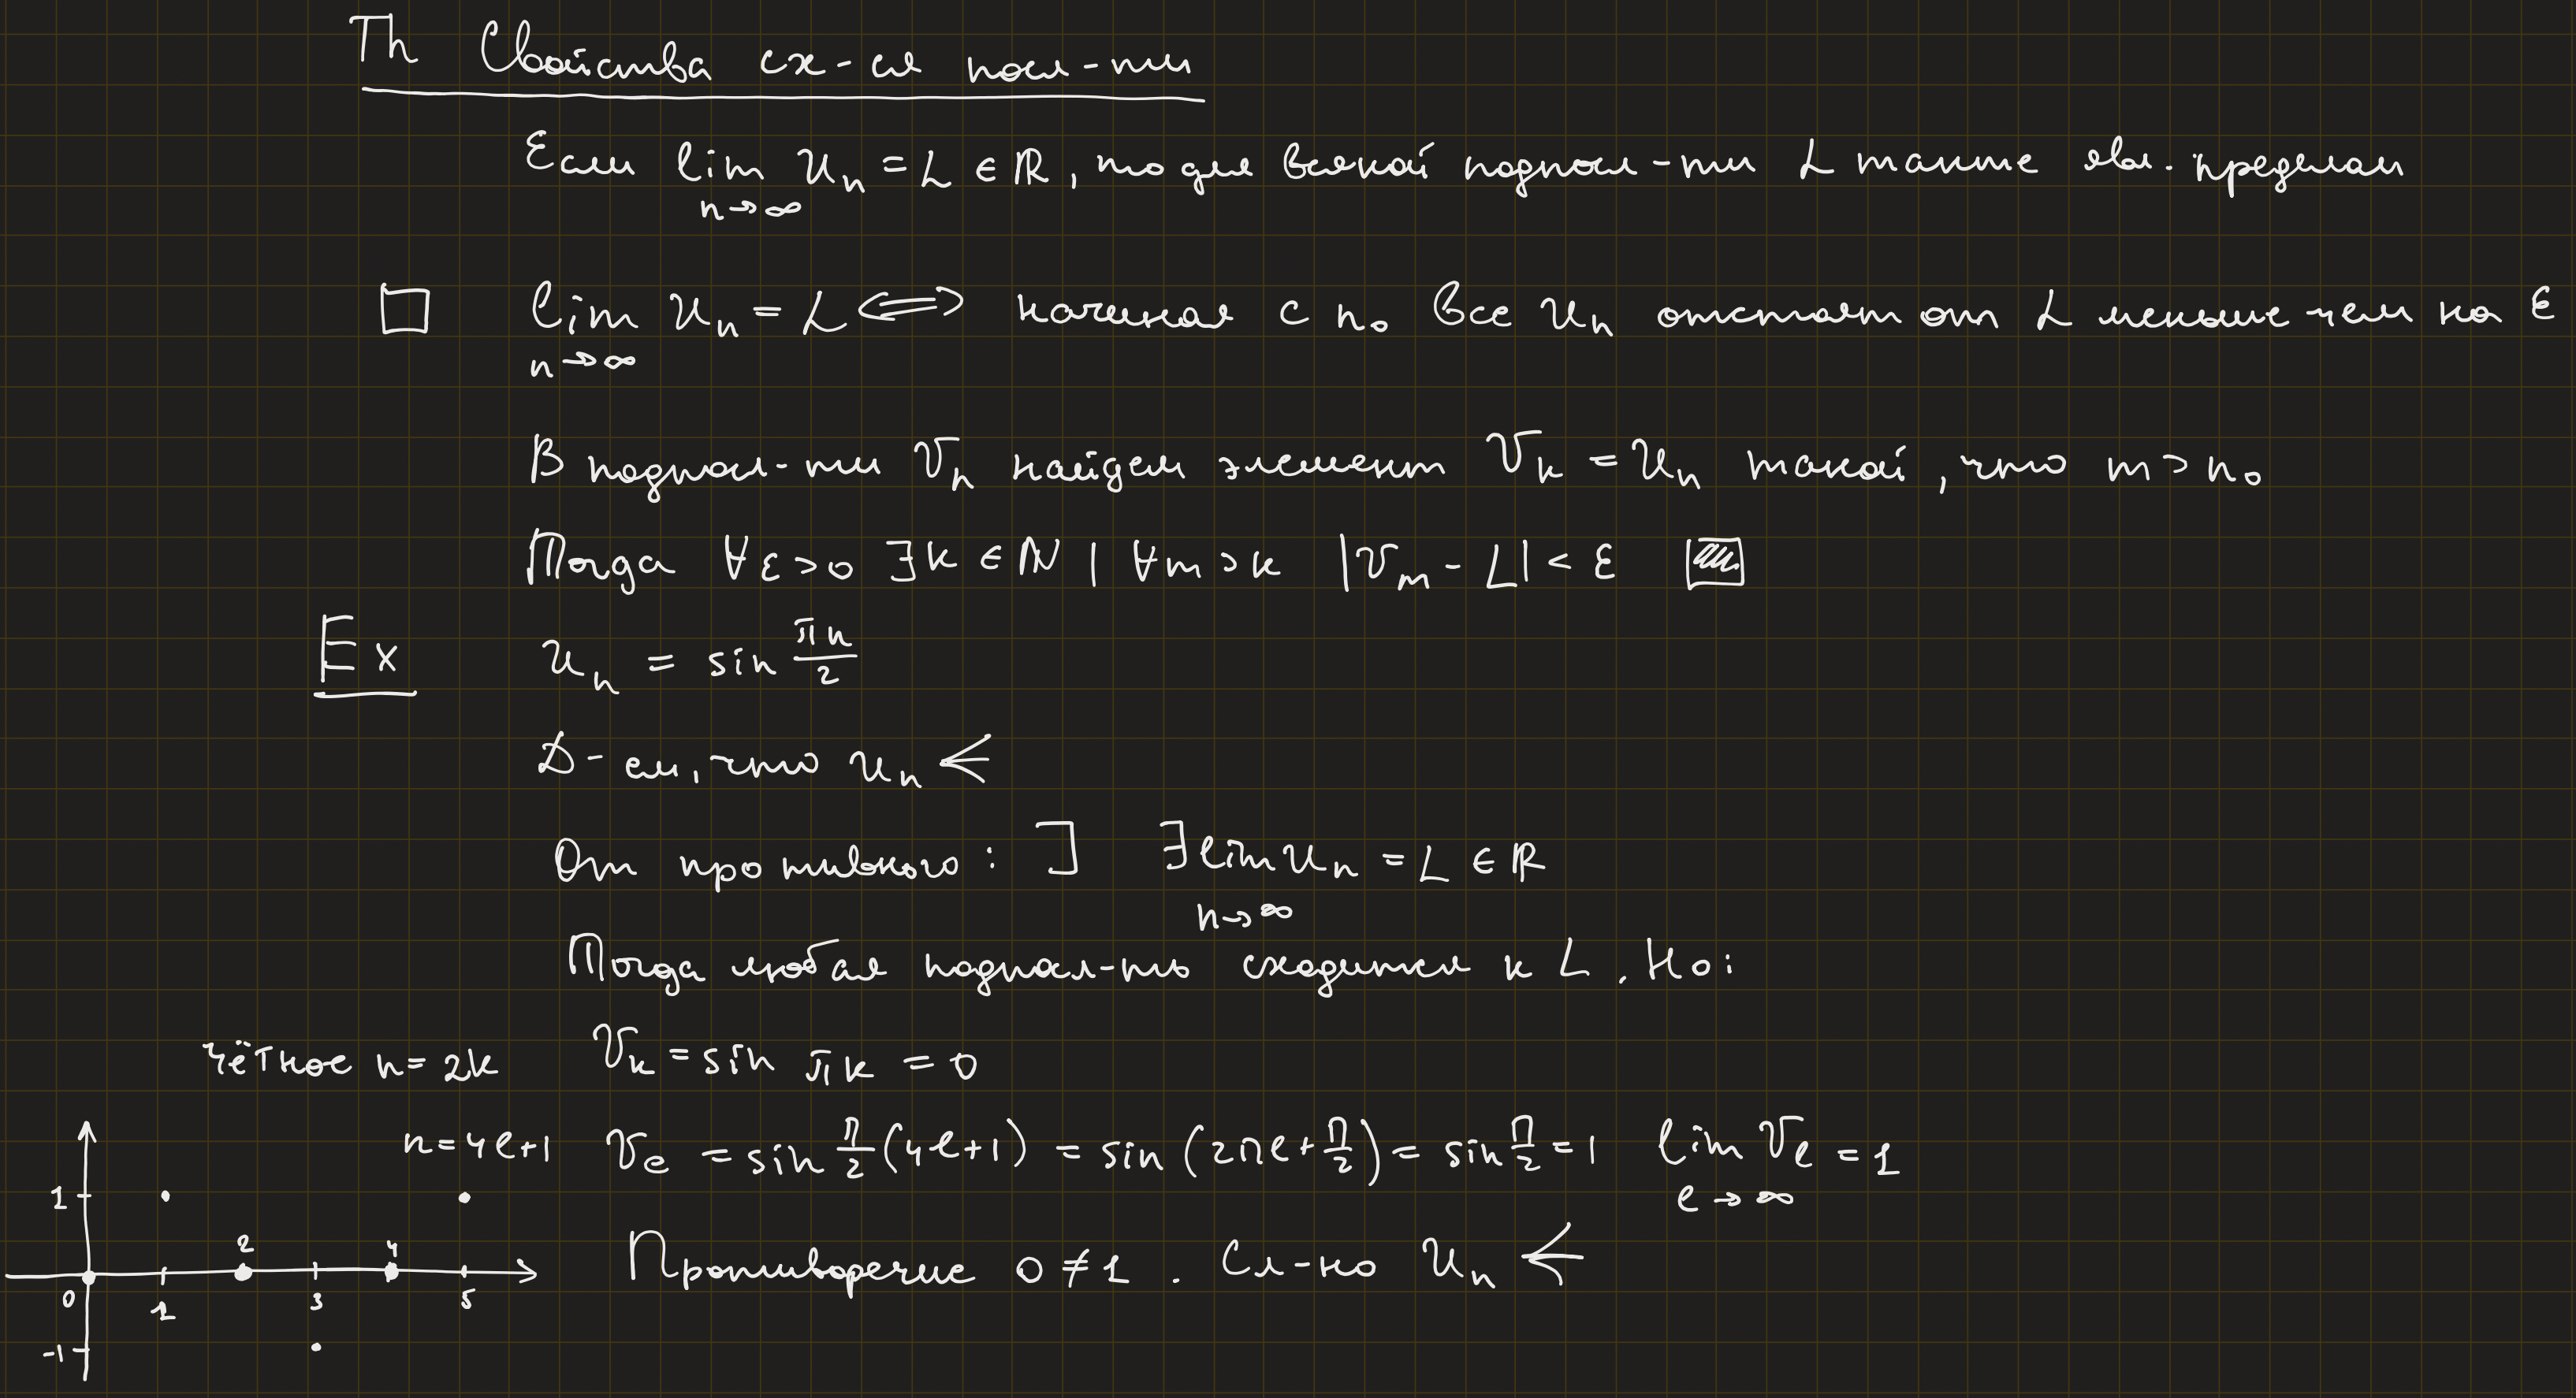 Th Свойства сх-ся посл-ти
Если lim uₙ = L ∈ ℝ, то для всякой подпосл-ти L также явл. пределом
n→∞
lim uₙ = L ⟺ начиная с n₀ все uₙ отстоят от L меньше чем на ε
n→∞
В подпосл-ти vₙ найдем элемент vₖ = uₙ такой, что m > n₀
Тогда ∀ε>0 ∃k ∈ ℕ | ∀m>k |vₘ - L| < ε
Ex uₙ = sin πn/2
Д-ем, что uₙ ⋲
От противного: ] ∃ lim uₙ = L ∈ ℝ
n→∞
Тогда любая подпосл-ть сходится к L. Но:
чётное n=2k vₖ = sin πk = 0
n=4l+1 vₗ = sin π/2 (4l+1) = sin (2πl + π/2) = sin π/2 = 1 lim vₗ = 1
l→∞
Противоречие 0 ≠ 1. Сл-но uₙ ⋲
1
2 4
0 1 3 5
-1